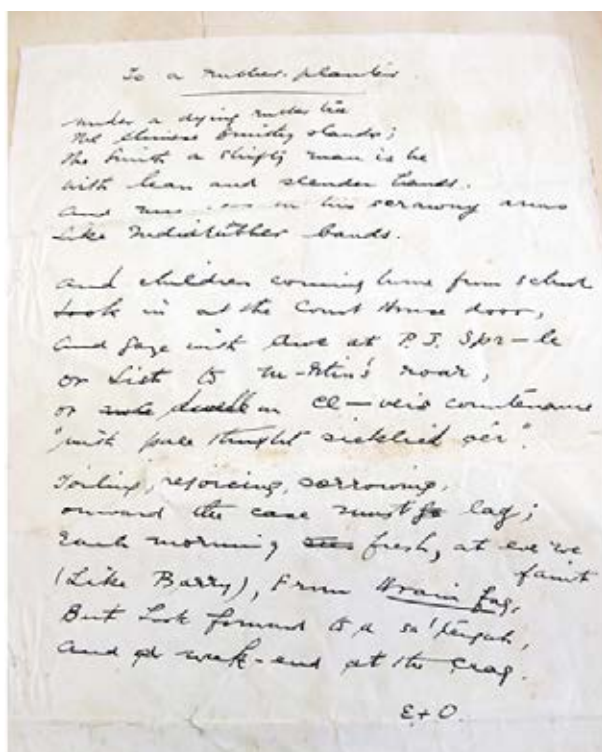 To a rubber-planter.
Under a dying rubber tree
The Chinese Smithy stands;
The Smith a shifty man is he
With lean and slender hands.
And muscles on his scrawny arms
Like Indiarubber bands.
And children coming home from school
Look in at the Court House door,
And gaze with awe at P.J. Spr–le
Or List to M–rtin's roar,
Or dwell on Cl–ve's countenance
"with pale thought sicklied o'er".
Toiling, rejoicing, sorrowing,
Onward the case must lag;
Each morning fresh, at eve we
faint
(Like Barry), From Brain fag,
But look forward to a sa'tengah,
And a week-end at the Crag.
E+O.